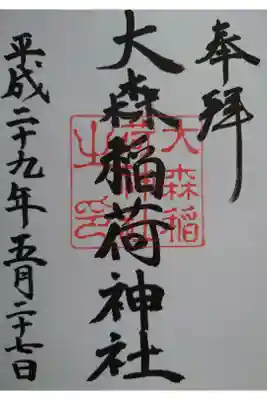 奉拜
大森稲荷神社
大森稲荷神社之印
平成二十九年五月二十七日